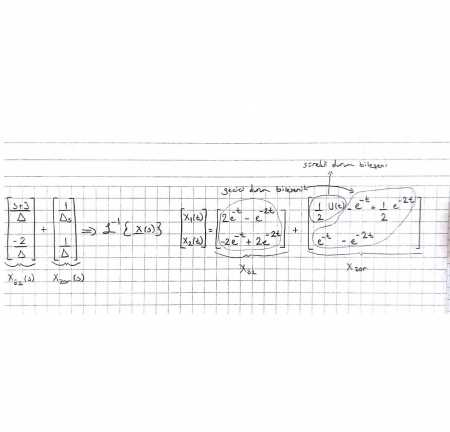 sürekli durum bileşeni
geçici durum bileşeni
[s+3/Δ -2/Δ] + [1/Δs 1/Δ] ⇒ ℒ⁻¹{X(s)} [x₁(t) x₂(t)] = [2e^-t - e^-2t -2e^-t + 2e^-2t] + [1/2 u(t) - e^-t + 1/2 e^-2t e^-t - e^-2t]
Xöz(s) Xzor(s) Xöz Xzor